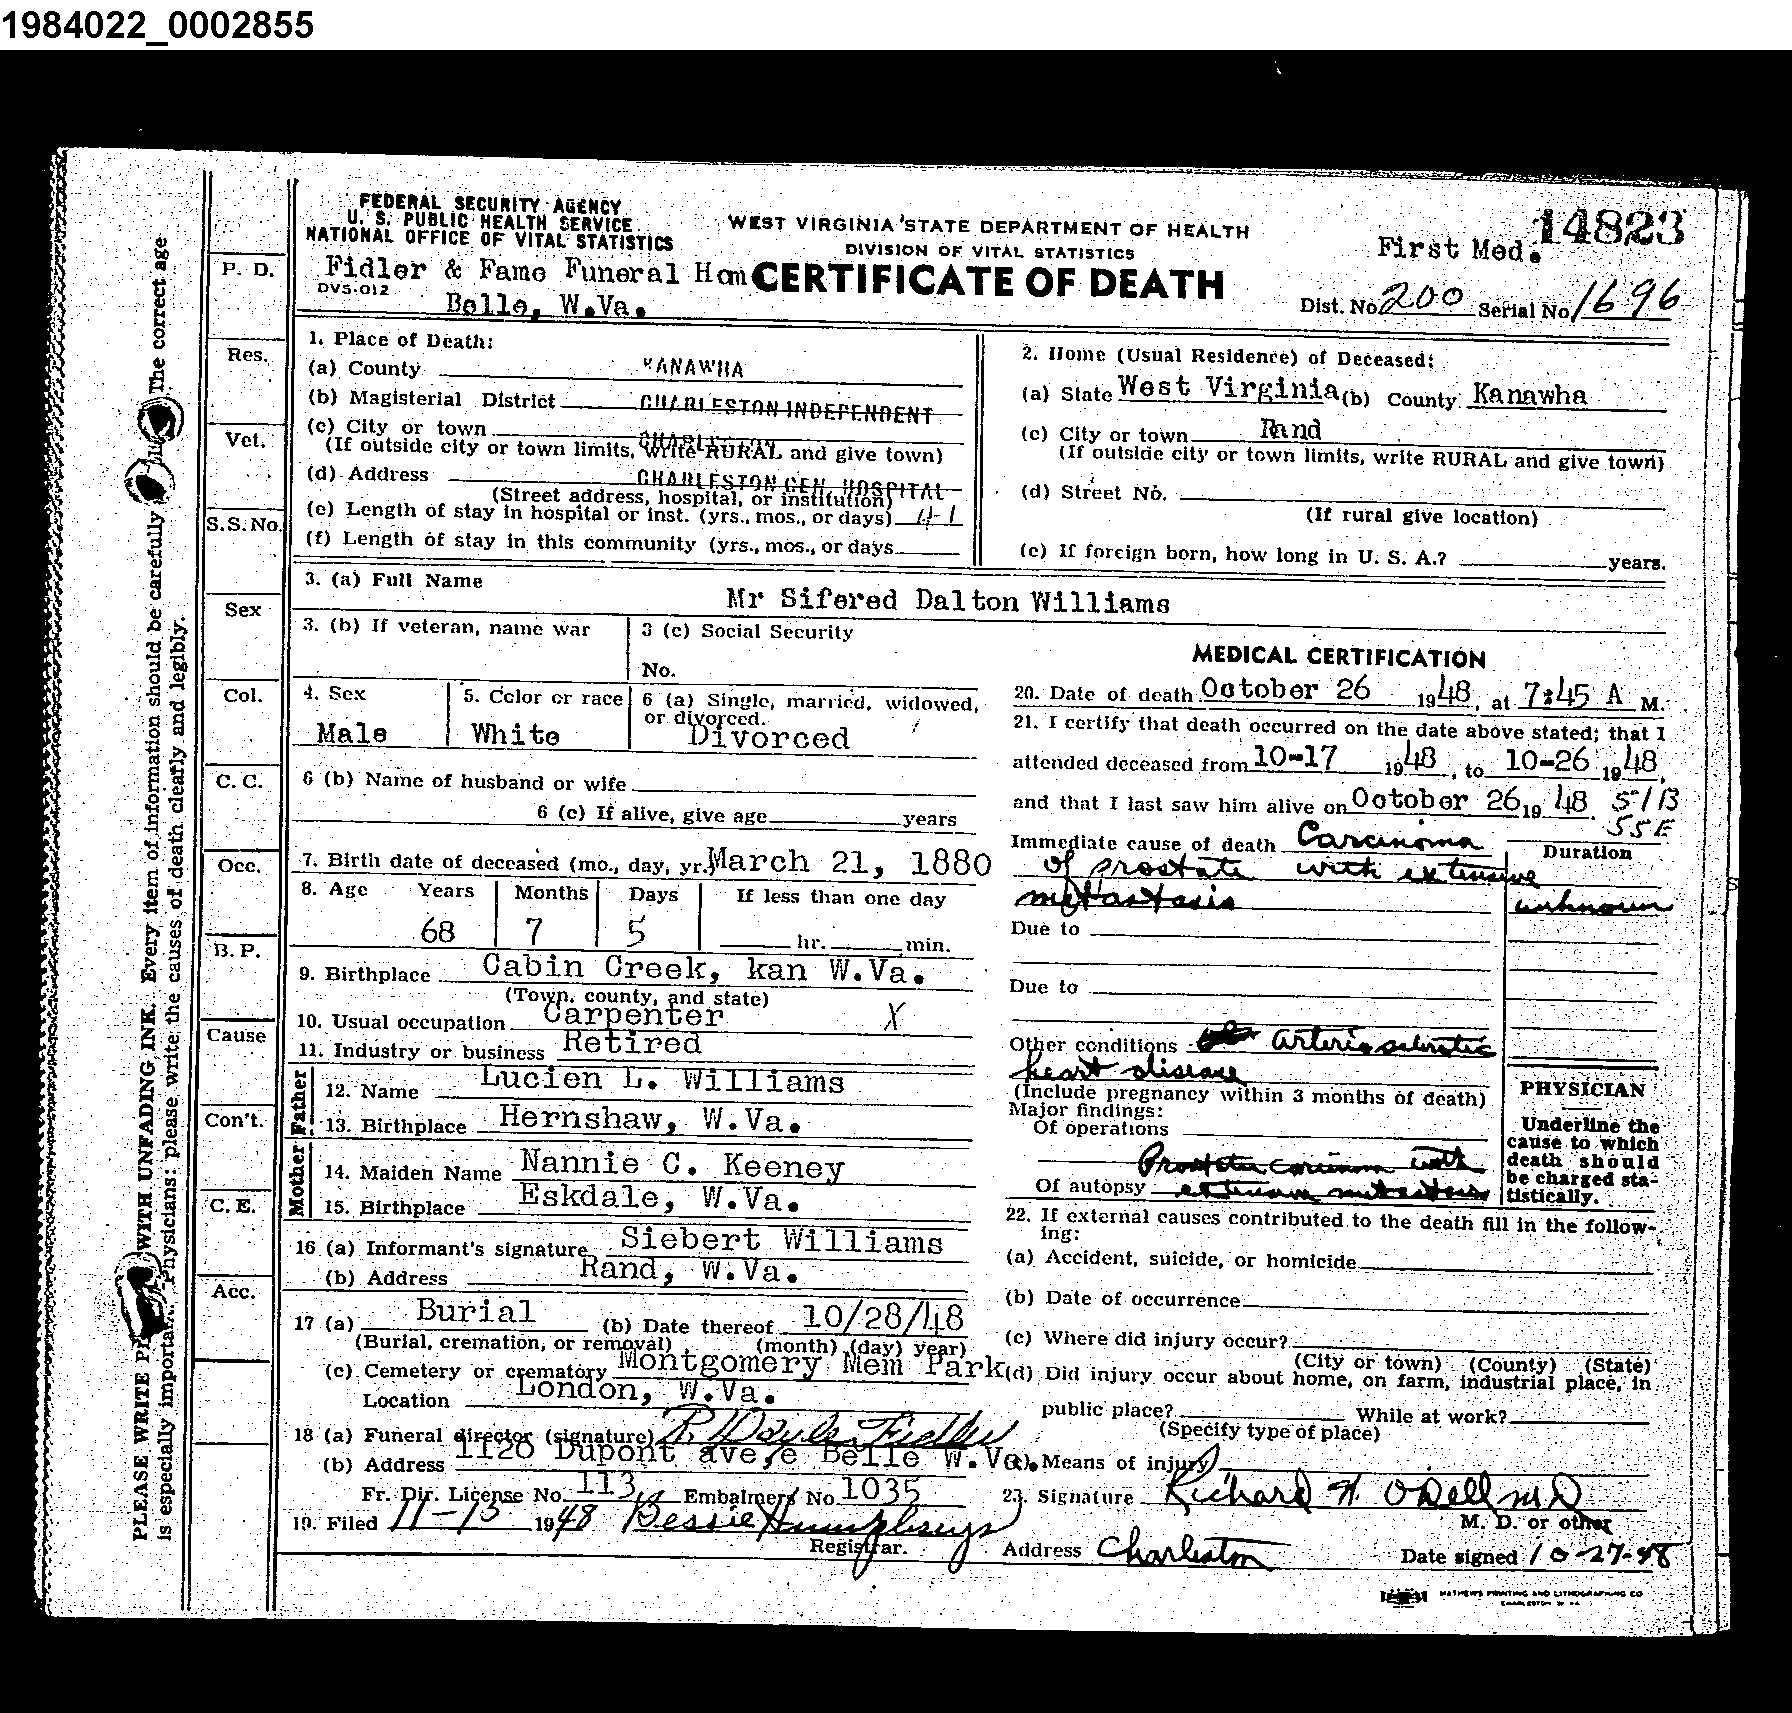 1984022_0002855
FEDERAL SECURITY AGENCY
U. S. PUBLIC HEALTH SERVICE
NATIONAL OFFICE OF VITAL STATISTICS
WEST VIRGINIA STATE DEPARTMENT OF HEALTH
DIVISION OF VITAL STATISTICS
CERTIFICATE OF DEATH
First Med. 14823
Fidler & Fame Funeral Hom
DVS-012
Belle, W.Va.
Dist. No. 200 Serial No. 1696
P. D.
Res.
Vet.
S.S. No.
Sex
Col.
C. C.
Occ.
B. P.
Cause
Con't.
C. E.
Acc.
PLEASE WRITE WITH UNFADING INK. Every item of information should be carefully The correct age
is especially Physicians: please write the causes of death clearly and legibly.
1. Place of Death:
(a) County KANAWHA
(b) Magisterial District CHARLESTON INDEPENDENT
(c) City or town CHARLESTON
(If outside city or town limits, write RURAL and give town)
(d) Address CHARLESTON GEN. HOSPITAL
(Street address, hospital, or institution)
(e) Length of stay in hospital or inst. (yrs., mos., or days)
(f) Length of stay in this community (yrs., mos., or days
2. Home (Usual Residence) of Deceased:
(a) State West Virginia (b) County Kanawha
(c) City or town Rand
(If outside city or town limits, write RURAL and give town)
(d) Street No.
(If rural give location)
(e) If foreign born, how long in U. S. A.? years.
3. (a) Full Name Mr Sifered Dalton Williams
3. (b) If veteran, name war
3 (c) Social Security
No.
4. Sex Male
5. Color or race White
6 (a) Single, married, widowed,
or divorced.
Divorced
6 (b) Name of husband or wife
6 (c) If alive, give age years
7. Birth date of deceased (mo., day, yr.) March 21, 1880
8. Age Years Months Days If less than one day
68 7 5 hr. min.
9. Birthplace Cabin Creek, kan W.Va.
(Town, county, and state)
10. Usual occupation Carpenter X
11. Industry or business Retired
Father
12. Name Lucien L. Williams
13. Birthplace Hernshaw, W.Va.
Mother
14. Maiden Name Nannie C. Keeney
15. Birthplace Eskdale, W.Va.
16 (a) Informant's signature Siebert Williams
(b) Address Rand, W.Va.
17 (a) Burial (b) Date thereof 10/28/48
(Burial, cremation, or removal) (month) (day) year)
(c) Cemetery or crematory Montgomery Mem Park
Location London, W.Va.
18 (a) Funeral director (signature) P. Doyle Fidler
(b) Address 1120 Dupont ave,e Belle W.Va.
Fr. Dir. License No. 113 Embalmers No. 1035
19. Filed 11-15 1948 Bessie Humphreys
Registrar.
MEDICAL CERTIFICATION
20. Date of death October 26 1948, at 7:45 A M.
21. I certify that death occurred on the date above stated; that I
attended deceased from 10-17 1948, to 10-26 1948,
and that I last saw him alive on October 26 19 48. 51B
55E
Immediate cause of death Carcinoma
Duration
of prostate with extensive
metastasis unknown
Due to
Due to
Other conditions Arteriosclerotic
heart disease
(Include pregnancy within 3 months of death)
Major findings:
Of operations
Prostatic carcinoma with
Of autopsy extensive metastasis
PHYSICIAN
Underline the
cause to which
death should
be charged sta-
tistically.
22. If external causes contributed to the death fill in the follow-
ing:
(a) Accident, suicide, or homicide
(b) Date of occurrence
(c) Where did injury occur?
(City or town) (County) (State)
(d) Did injury occur about home, on farm, industrial place, in
public place? While at work?
(Specify type of place)
(e) Means of injury
23. Signature Richard N. O'Dell M.D
M. D. or other
Address Charleston Date signed 10-27-48
MATHEWS PRINTING AND LITHOGRAPHING CO
CHARLESTON W VA